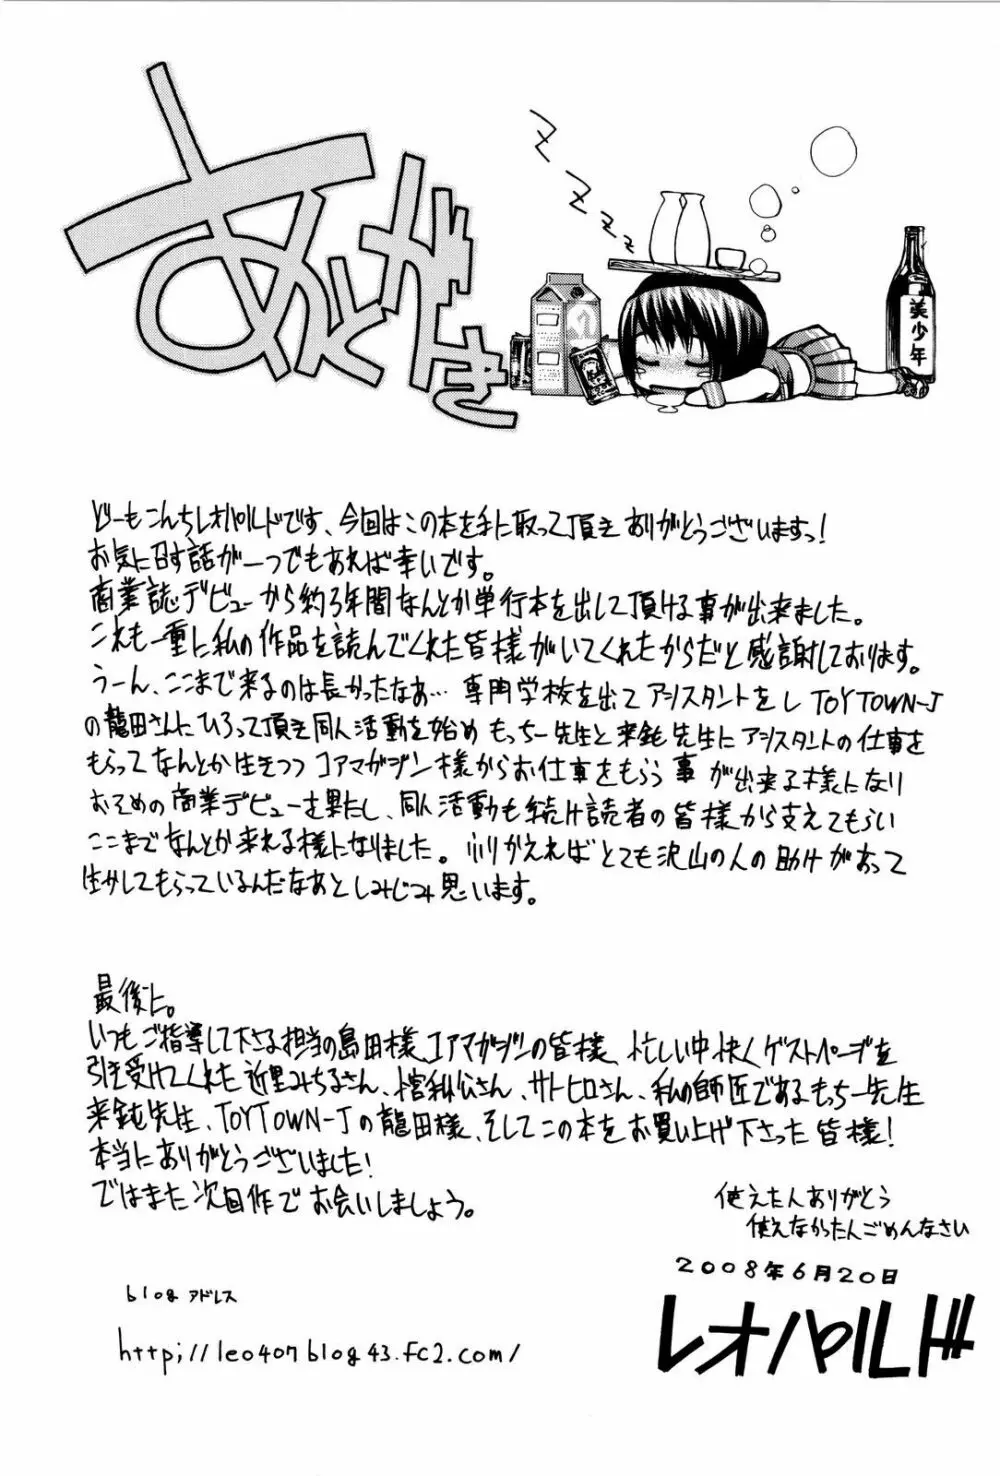 あとがき
美少年
どーもこんちレオパルドです、今回はこの本を手に取って頂きありがとうございますっ!
お気に召す話が一つでもあれば幸いです。
商業誌デビューから約3年間なんとか単行本を出して頂ける事が出来ました。
これも一重に私の作品を読んでくれた皆様がいてくれたからだと感謝しております。
うーん、ここまで来るのは長かったなぁ… 専門学校を出てアシスタントをし TOYTOWN-J
の龍田さんにひろって頂き同人活動を始め もっちー先生と来鈍先生にアシスタントの仕事を
もらってなんとか生きつつ コアマガジン様からお仕事をもらう事が出来る様になり
おそめの商業デビューを果たし、同人活動も続け読者の皆様から支えてもらい
ここまでなんとか来れる様になりました。ふりかえればとても沢山の人の助けがあって
生かしてもらっているんだなあとしみじみ思います。
最後に。
いつもご指導して下さる担当の島田様、コアマガジンの皆様、忙しい中快くゲストページを
引き受けてくれた 近里みちるさん、利公さん、サトヒロさん、私の師匠であるもっちー先生
来鈍先生、TOYTOWN-Jの龍田様、そしてこの本をお買い上げ下さった皆様!
本当にありがとうございました!
ではまた次回作でお会いしましょう。
使えたんありがとう
使えなかったんごめんなさい
2008年6月20日
レオパルド
blog アドレス
http;//leo407blog43.fc2.com/